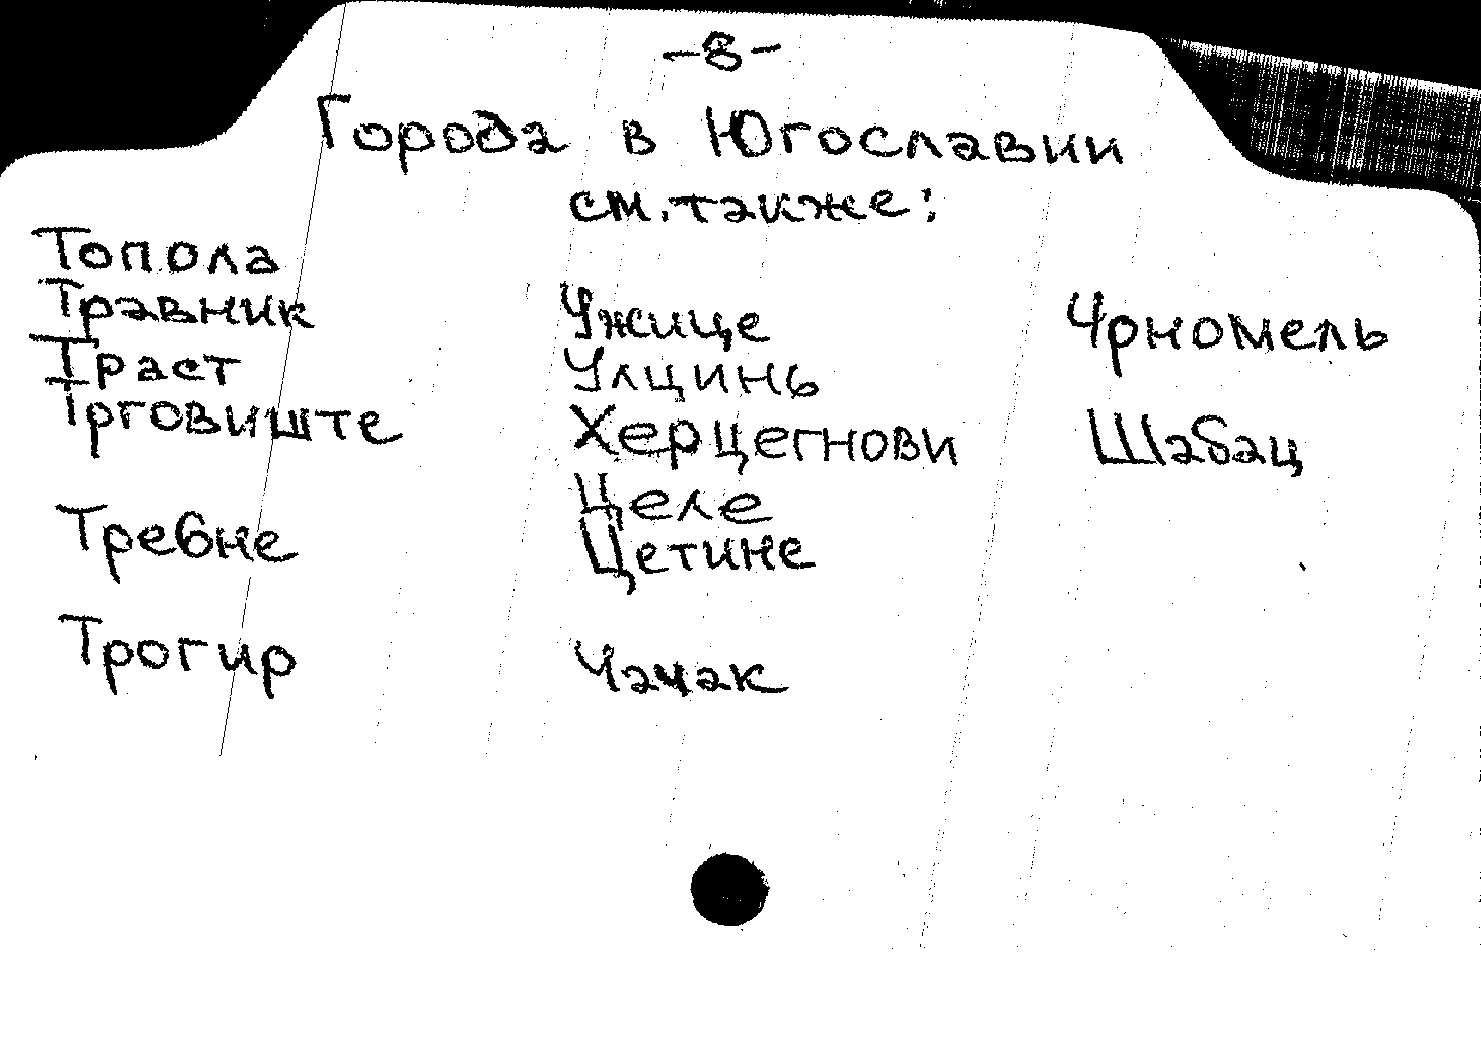 -8-
Города в Югославии
см. также:
Топола
Травник
Траст
Трговиште
Требне
Трогир
Ужице
Улцинь
Херцегнови
Целе
Цетине
Чачак
Чрномель
Шабац